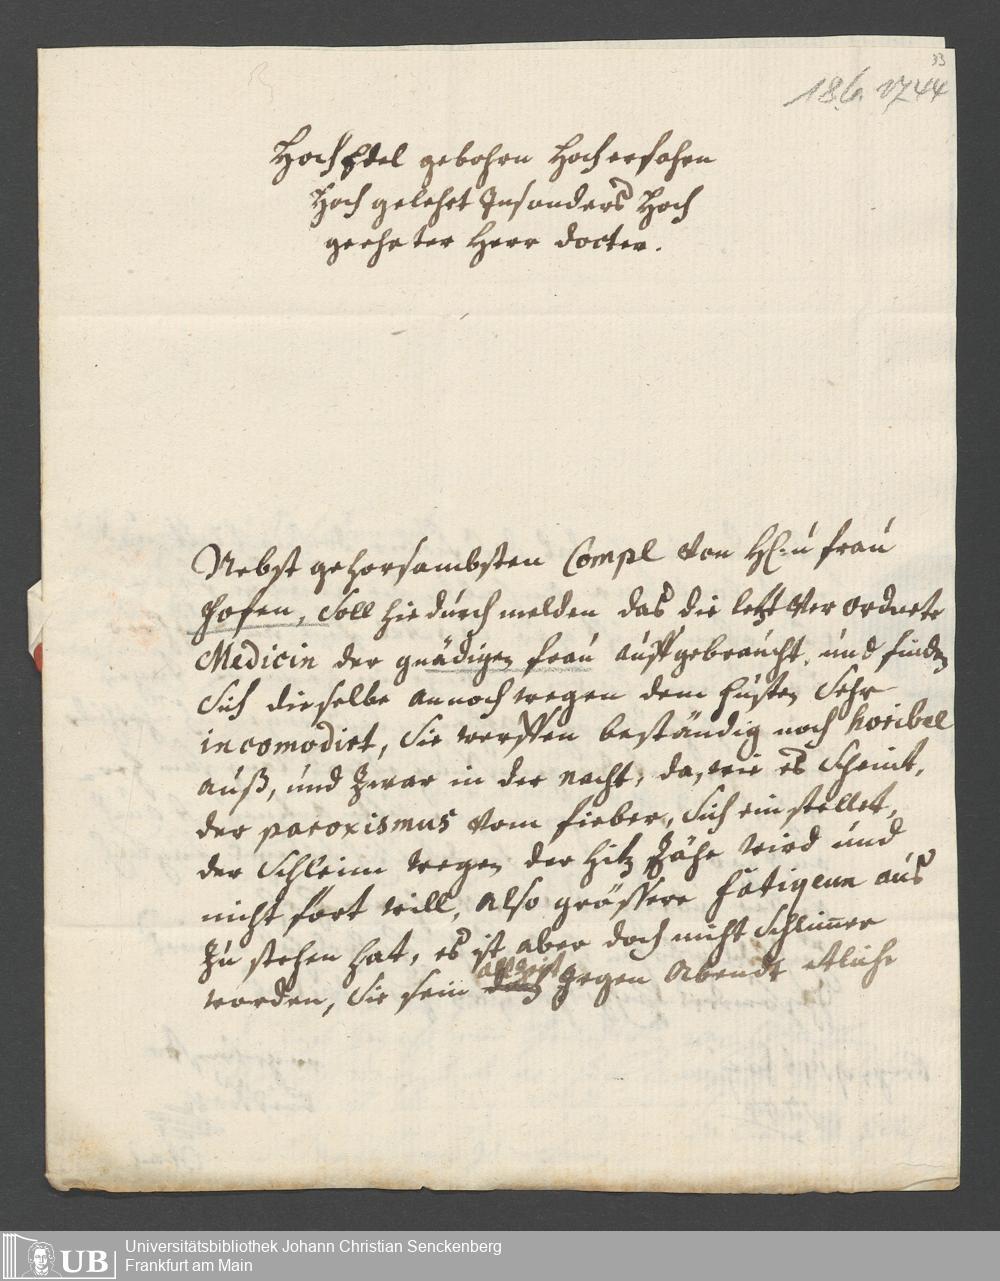 33
18.6.1744
HochEdel gebohrn Hocherfahrn
Hoch gelehrt Insonders Hoch
geehrter Herr docter.
Nebst gehorsambsten Compl von H: u frau
Hofen, Soll hiedurch melden das die letzt Ver ordnete
Medicin der gnädigen frau auffgebraucht, und finden
Sich dieselbe annoch wegen dem Husten Sehr
incomodirt, Sie werffen beständig noch horibel
auß, und Zwar in der nacht, da, wie es Scheint,
der paroxismus Vom fieber, Sich ein stellet,
der Schleim wegen der Hitz Zähe wird und
nicht fort will, also grössere fatiquen aus
Zu stehen hat, es ist aber doch nicht Schlim̅er
worden, Sie sein allzeit gegen Abendt etliche
Universitätsbibliothek Johann Christian Senckenberg
Frankfurt am Main
UB